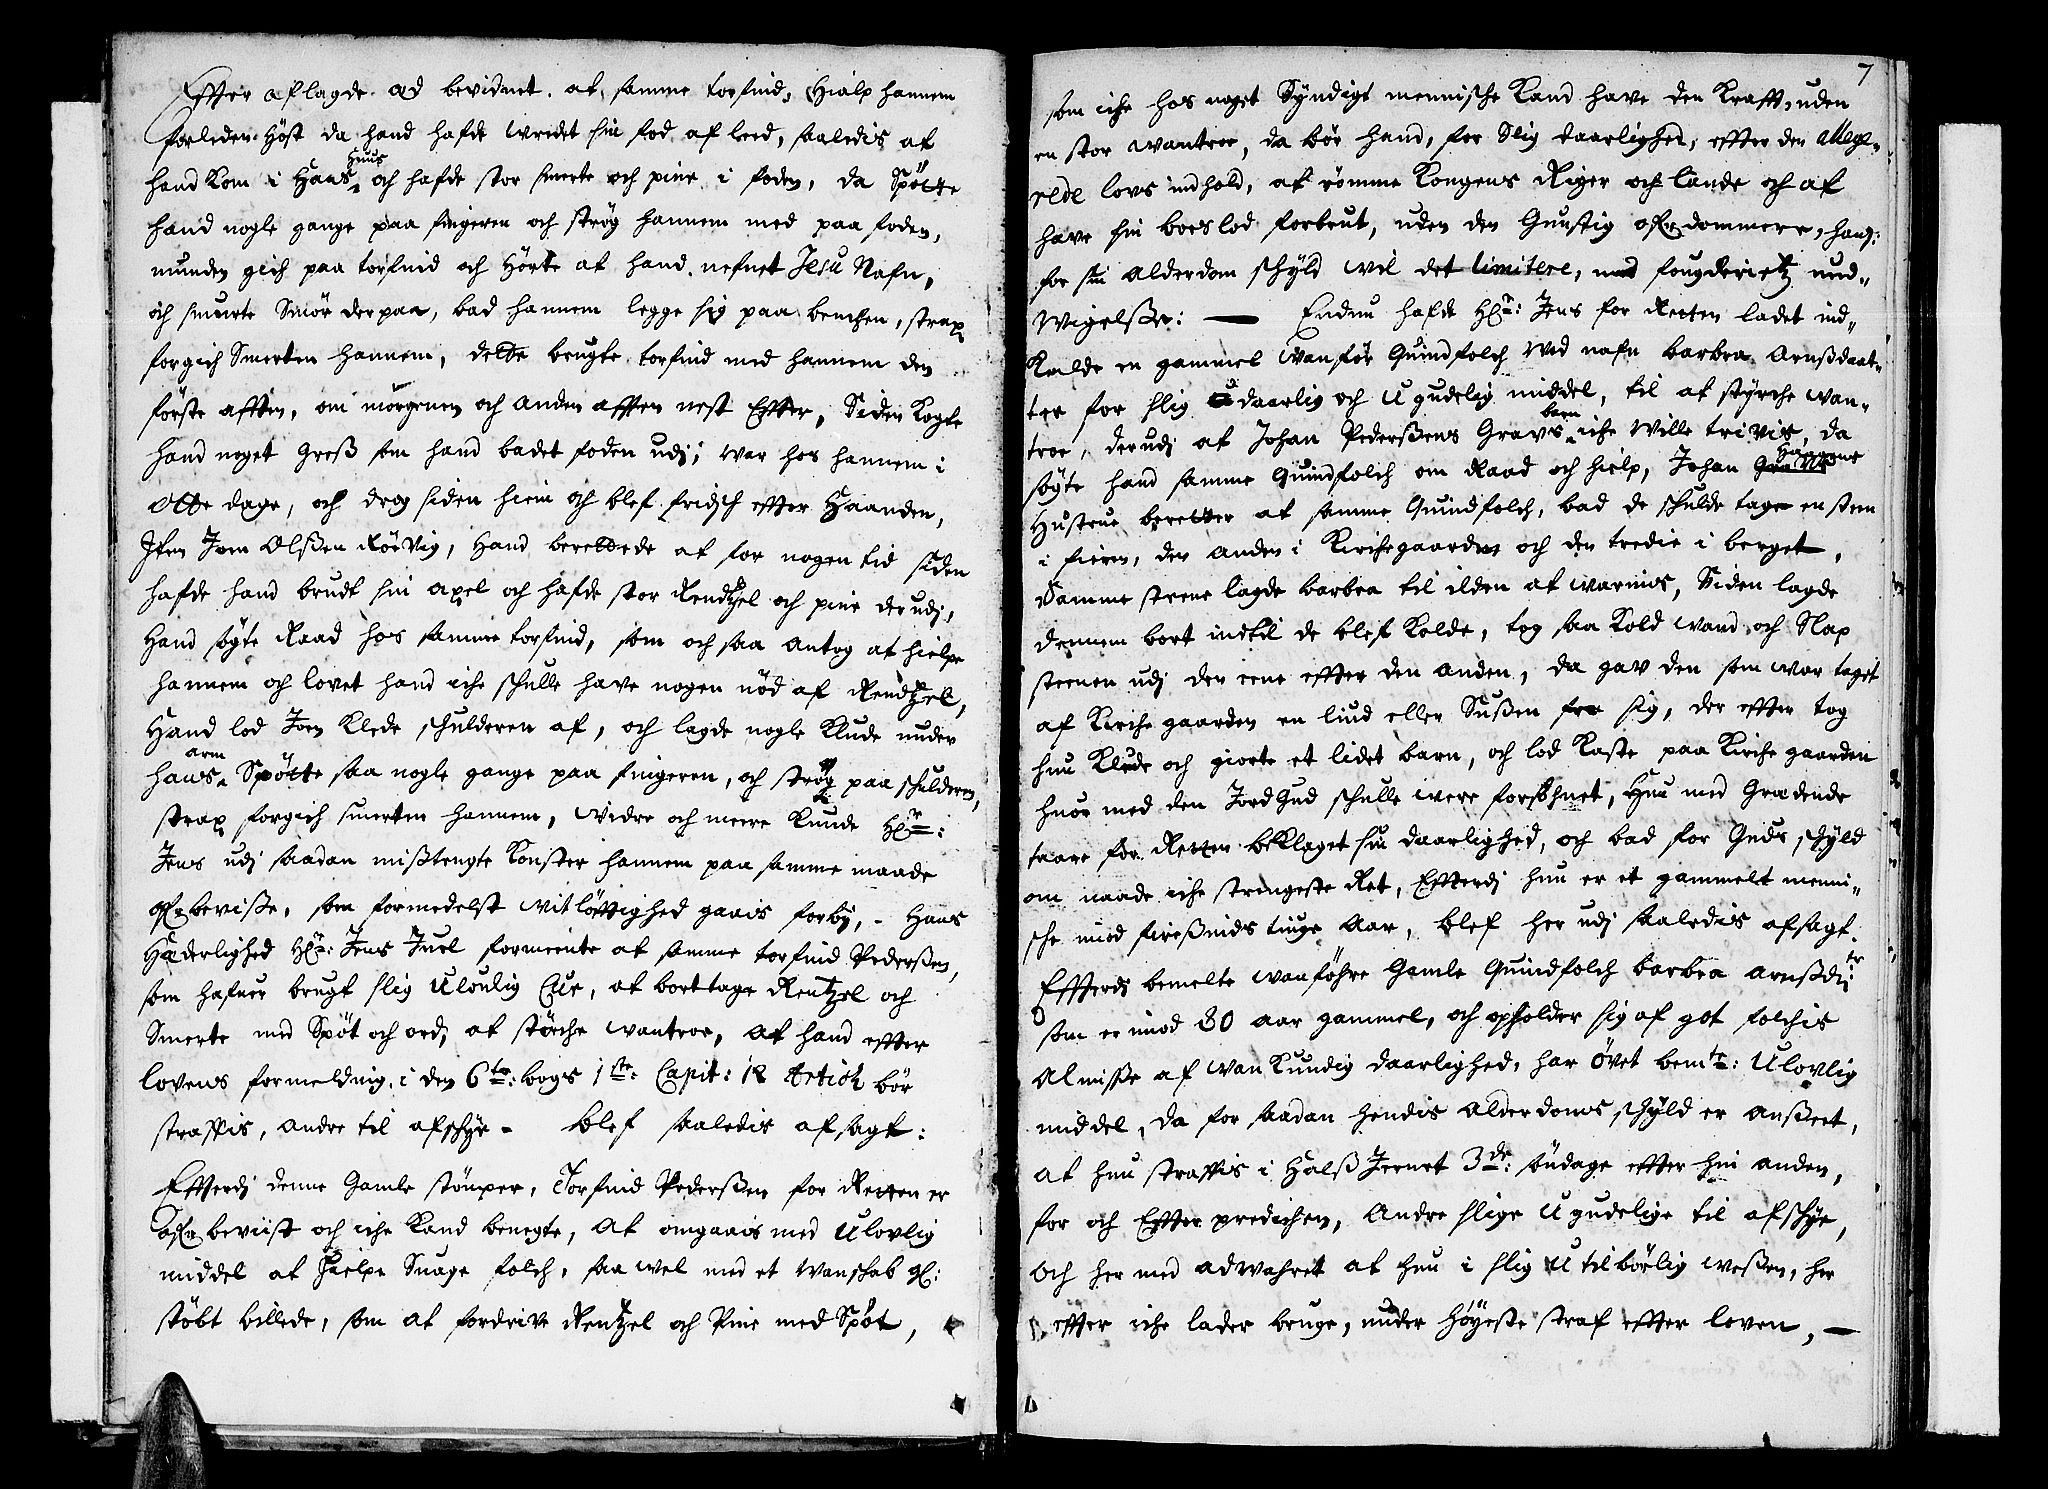 Effter aflagde æd bevidnet. at, samme torfind, Hialp hannem
forleden Höst da hand hafde wredet sin fod af leed, saaledis at
hand kom i Hans Huus och hafde stor smerte och pine i foden, da Spötte
hand nogle gange paa fingeren och strög hannem med paa foden,
munden gich paa torfind och Hörte at hand nefnet Jesu Nafn,
och smurte Smör derpaa, bad hannem legge sig paa benchen, strax
forgich Smerten hannem, dette brugte torfind med hannem den
förste afften, om morgenen och anden afften nest Effter, Siden kogte
hand noget Greß som hand badet foden udj, war hos hannem i
otte dage, och drog siden hiem och blef fridsch effter Haanden,
Item Joen Olßen Rörvig, Hand berettede at for nogen tid siden
hafde hand brudt sin axel och hafde stor Rendtzel och pine derudj,
Hand søgte Raad hos samme torfind, som och saa antog at hielpe
hannem och lovet hand iche schulle have nogen nöd af Rendtzel,
Hand lod Joen klede schulderen af, och lagde nogle klude under
hans arm Spötte saa nogle gange paa fingeren, och strög paa schulderen,
strax forgich smerten hannem, widre och meere kunde Hr:
Jens udj saadan mißtengte konster hannem paa samme maade
ofrbeviße, som formedelst vitlöftighed gaais forbj, - Hans
Hæderlighed Hr: Jens Juel formeente at samme torfind Pederßen,
som hafuer brugt slig Uloulig Cur, at borttage Rentzel och
Smerte med Spöt och ord, at störche wantroe, at hand effter
lovens formelding i den 6te: bogs 1ste: Capit: 12 Articl bör
straffis, andre til afschye - blef saaledis afsagt:
Efterdj denne Gamle stömper, Torfind Pederßen for Retten er
ofrbeviist och iche kand benegte, at omgaais med Ulovlig
middel at hielpe Suage folch, saa wel med et wanschab ell:
stöbt billede, som at fordrive Rentzel och Pine med Spöt,
7
som iche hos noget Syndigt mennische kand have den krafft, uden
en stor wantroe, da bör hand, for Slig daarlighed, effter den Allege-
rede lovs indhold, at römme Kongens Riger och lande och at
have sin boeslod forbrut, uden den Gunstig ofrdommere, hans
for sin alderdom schyld wil det limitere, med fougderietz und-
wigelße: — Endnu hafde Hr: Jens for Retten ladet ind-
kalde en gammel wanför Quindfolch wed nafn barbra Arnßdaat-
ter for slig daarlig och Ugudelig middel, til at styrche wan-
troe, derudj at Johan Pederßens Gravs barn iche wille trivis, da
søgte hand samme Quindfolch om Raad och hielp, Johan
Hustrue beretter at samme Quindfolch, bad de schulde tage en steen
i fieren, den anden i Kirchegaarden och den tredie i berget,
Samme steene lagde barbra til ilden at warmis, Siden lagde
dennem bort indtil de blef kolde, tog saa kold wand och Slap
steenen udj den eene effter den anden, da gav den som war taget
af Kirche gaarden en liud eller Sußen fra sig, der effter tog
hun klude och giorte et lidet barn, och lod kaste paa Kirche gaarden
huor med den Jord Gud schulle were forsöhnet, Hun med Grædende
taare for Retten beklaget sin daarlighed, och bad for Guds schyld
om naade iche strengeste Ret, Effterdj hun er et gammelt menni-
sche imod fireßinds tiuge aar, blef her udj saaledis afsagt.
Effterdj bemelte wanföhre Gamle Quindfolch barbra arnßdtr:
som er imod 80 aar gammel, och opholder sig af got folchis
Almisse af wankundig daarlighed, har övet bemte: Ulovlig
middel, da for saadan hendis alderdoms schyld er anßeet,
at hun straffis i Halß Jernet 3de: söndage effter hin anden,
for och Effter predichen, Andre slige Ugudelige til afschye,
och her med adwahret at hun i slig Utilbörlig weßen, her
effter iche lader bruge, under höyeste straf effter loven, —